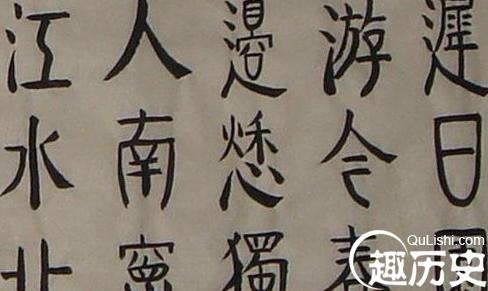 遲日園
游今春
邊愁獨
人南竄
江水北
QuLishi.com
趣历史